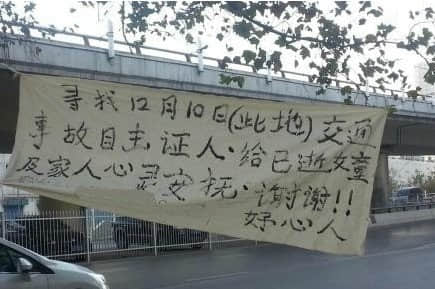 寻找12月10日(此地)交通
事故目击证人.给已逝女童
及家人心灵安抚.谢谢!!
好心人